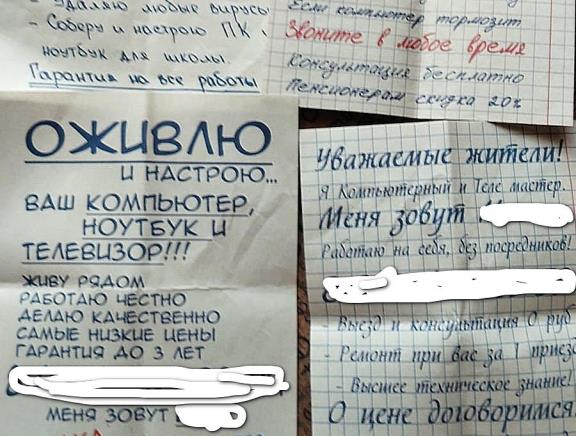 Удаляю любые вирусы
- Соберу и настрою ПК,
ноутбук для школы.
Гарантия на все работы
Если компьютер тормозит
Звоните в любое время
Консультация бесплатно
Пенсионерам скидка 20%
ОЖИВЛЮ
И НАСТРОЮ...
ВАШ КОМПЬЮТЕР,
НОУТБУК И
ТЕЛЕВИЗОР!!!
ЖИВУ РЯДОМ
РАБОТАЮ ЧЕСТНО
ДЕЛАЮ КАЧЕСТВЕННО
САМЫЕ НИЗКИЕ ЦЕНЫ
ГАРАНТИЯ ДО 3 ЛЕТ
МЕНЯ ЗОВУТ
Уважаемые жители!
Я Компьютерный и Теле мастер.
Меня зовут
Работаю на себя, без посредников!
- Выезд и консультация 0 руб
- Ремонт при вас за 1 приезд
- Высшее техническое знание!
О цене договоримся!